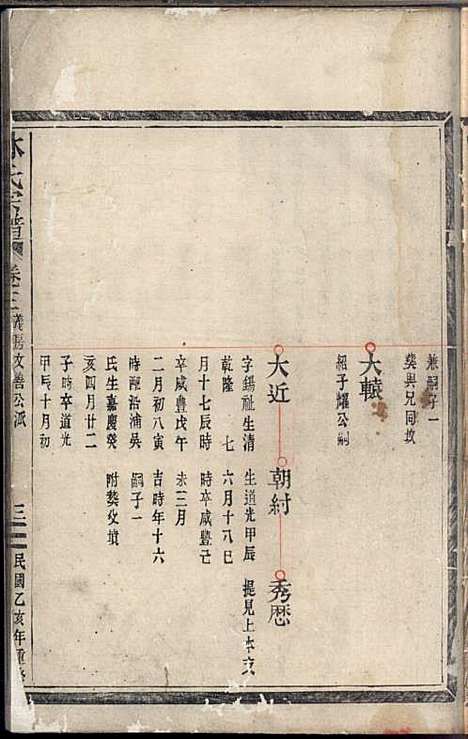 兼嗣子一
葬與兄同坟
大轅
紹子耀公嗣
大近
字錫祉生清
乾隆　七
月十七辰時
卒咸豐戊午
二月初八寅
時配沿浦吳
氏生嘉慶癸
亥四月廿二
子時卒道光
甲辰十月初
朝紂
生道光甲辰
六月十八巳
時卒咸豐己
未三月
吉時年十六
嗣子一
附葬父墳
秀歷
提見上本支
林氏宗譜
卷三
義房友善公派
三
民國乙亥年重修